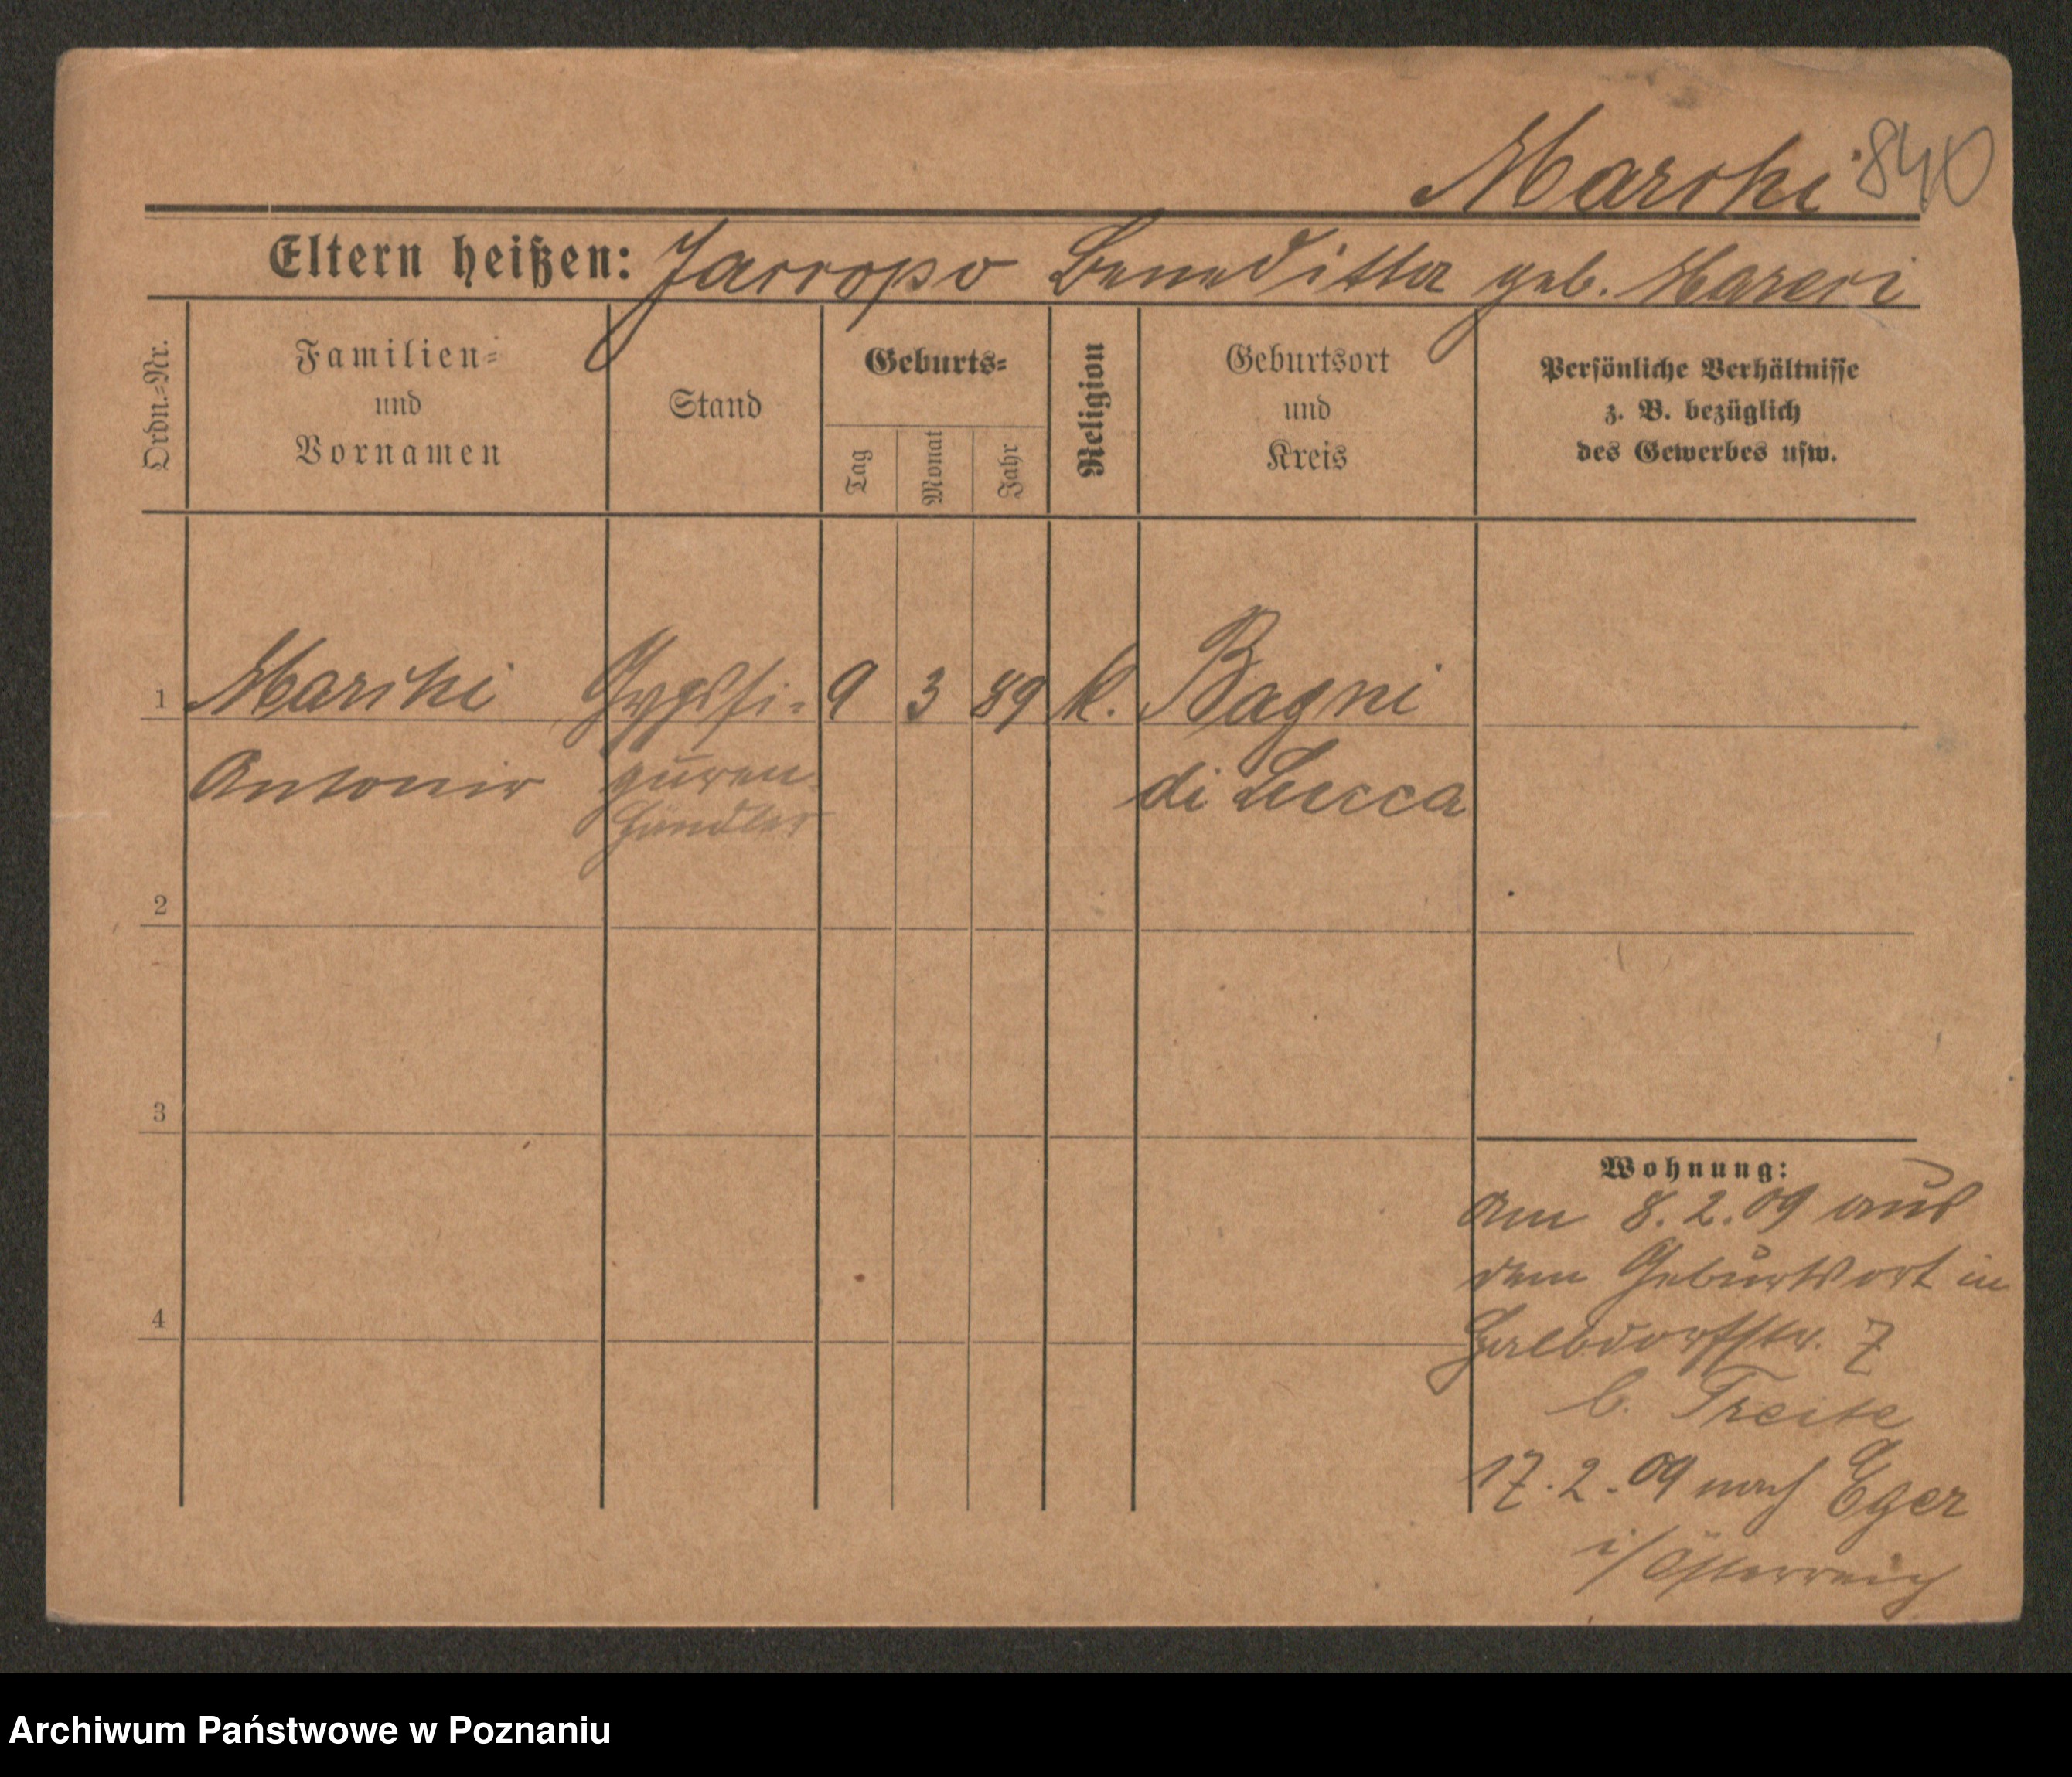 Marchi 840
Eltern heißen: Jacopo Beneditta geb. Mareri
Ordn.-Nr.
Familien-
und
Vornamen
Stand
Geburts-
Tag
Monat
Jahr
Religion
Geburtsort
und
Kreis
Persönliche Verhältnisse
z. B. bezüglich
des Gewerbes usw.
1 Marchi Gypsfi- 9 3 89 k. Bagni
Antonio guren- di Lucca
händler
2
3
4
Wohnung:
Am 8.2.09 aus
dem Geburtsort in
Halbdorfstr. 7
b. Treite
17.2.09 nach Eger
i/Österreich
Archiwum Państwowe w Poznaniu